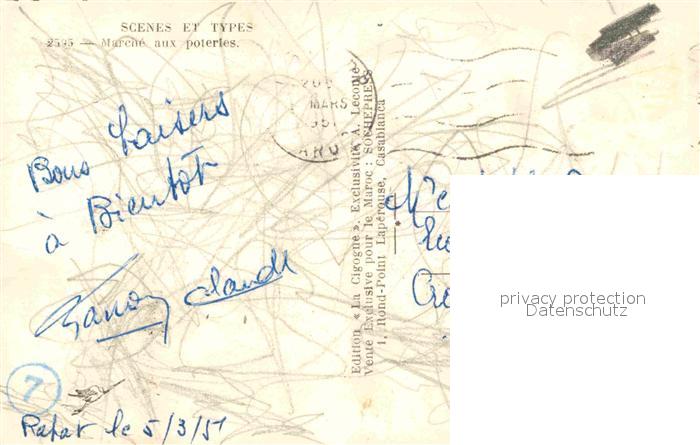 SCENES ET TYPES
2595 — Marché aux poteries.
MARS
Bons baisers
à Bientôt
Claude
7
Rabat le 5/3/51
Edition « La Cigogne ». Exclusivité A. Leconte
Vente Exclusive pour le Maroc : SOCHEPRESS
1, Rond-Point Lapérouse, Casablanca
privacy protection
Datenschutz